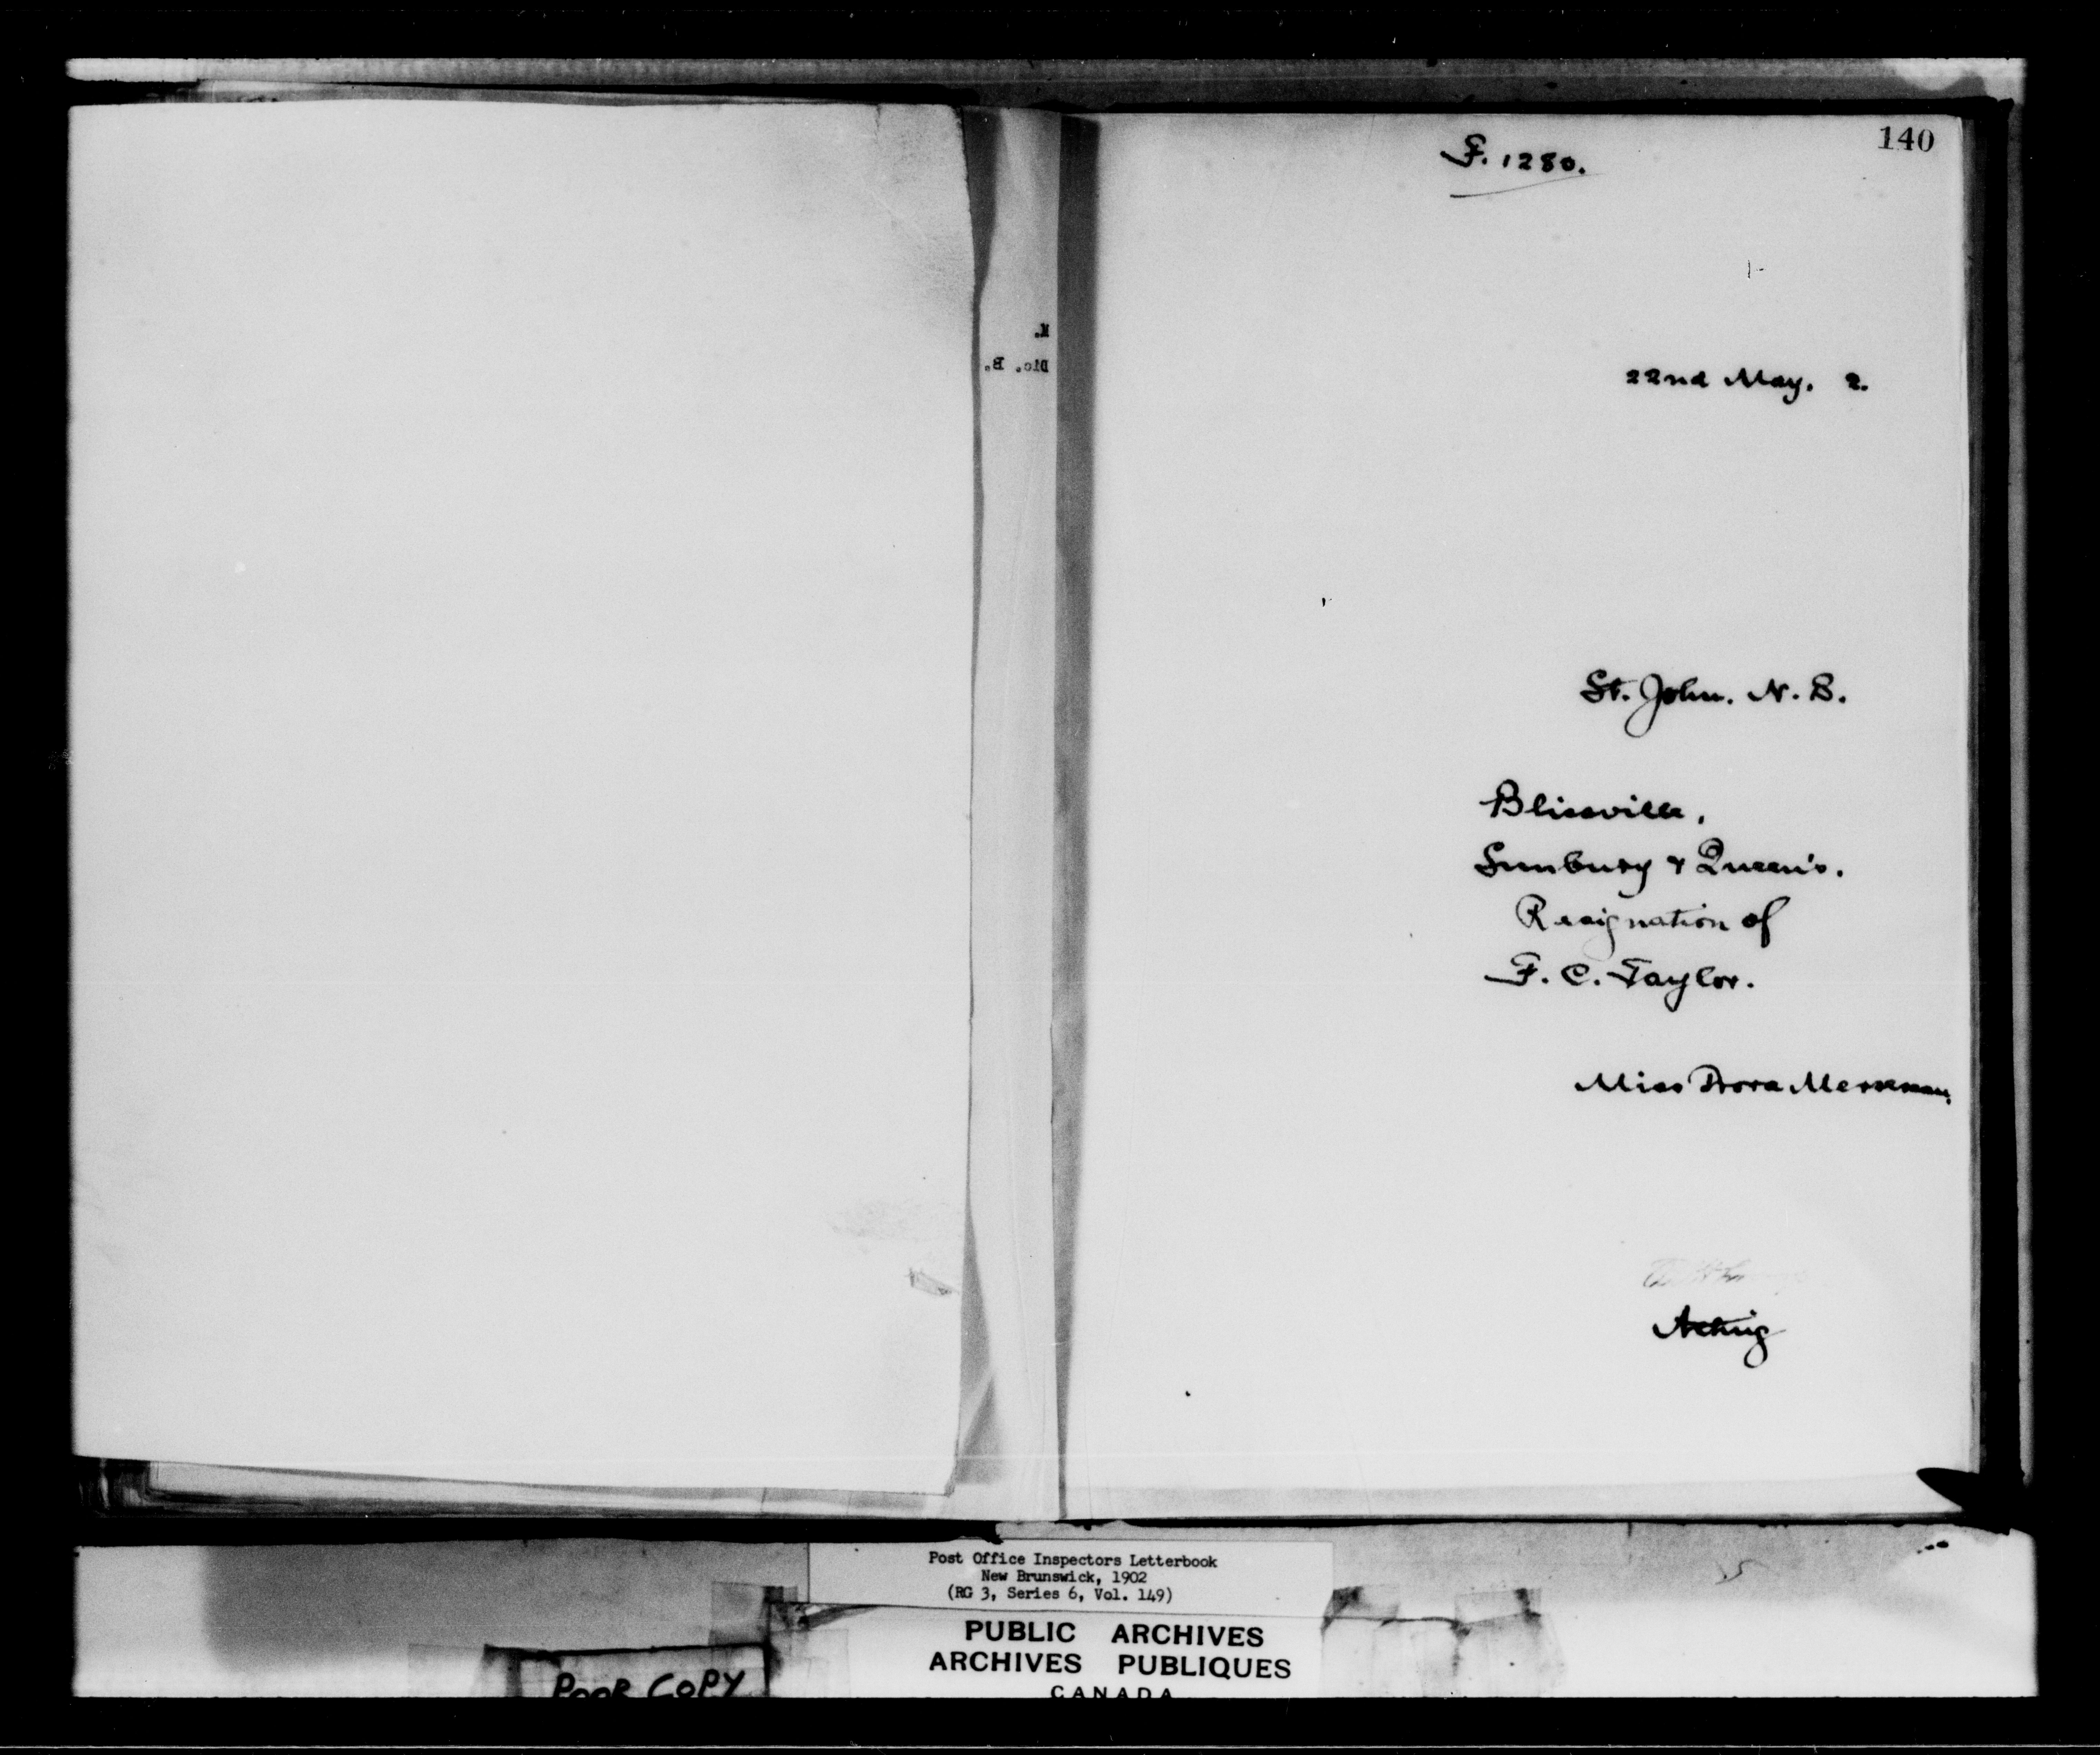 140
F. 1280.
22nd May. 2.
St. John. N. B.
Blissville,
Sunbury & Queen's.
Resignation of
F. C. Taylor.
Miss Dora Mersereau,
Acting
M.
Dic. B.
Post Office Inspectors Letterbook
New Brunswick, 1902
(RG 3, Series 6, Vol. 149)
PUBLIC ARCHIVES
ARCHIVES PUBLIQUES
CANADA
POOR COPY